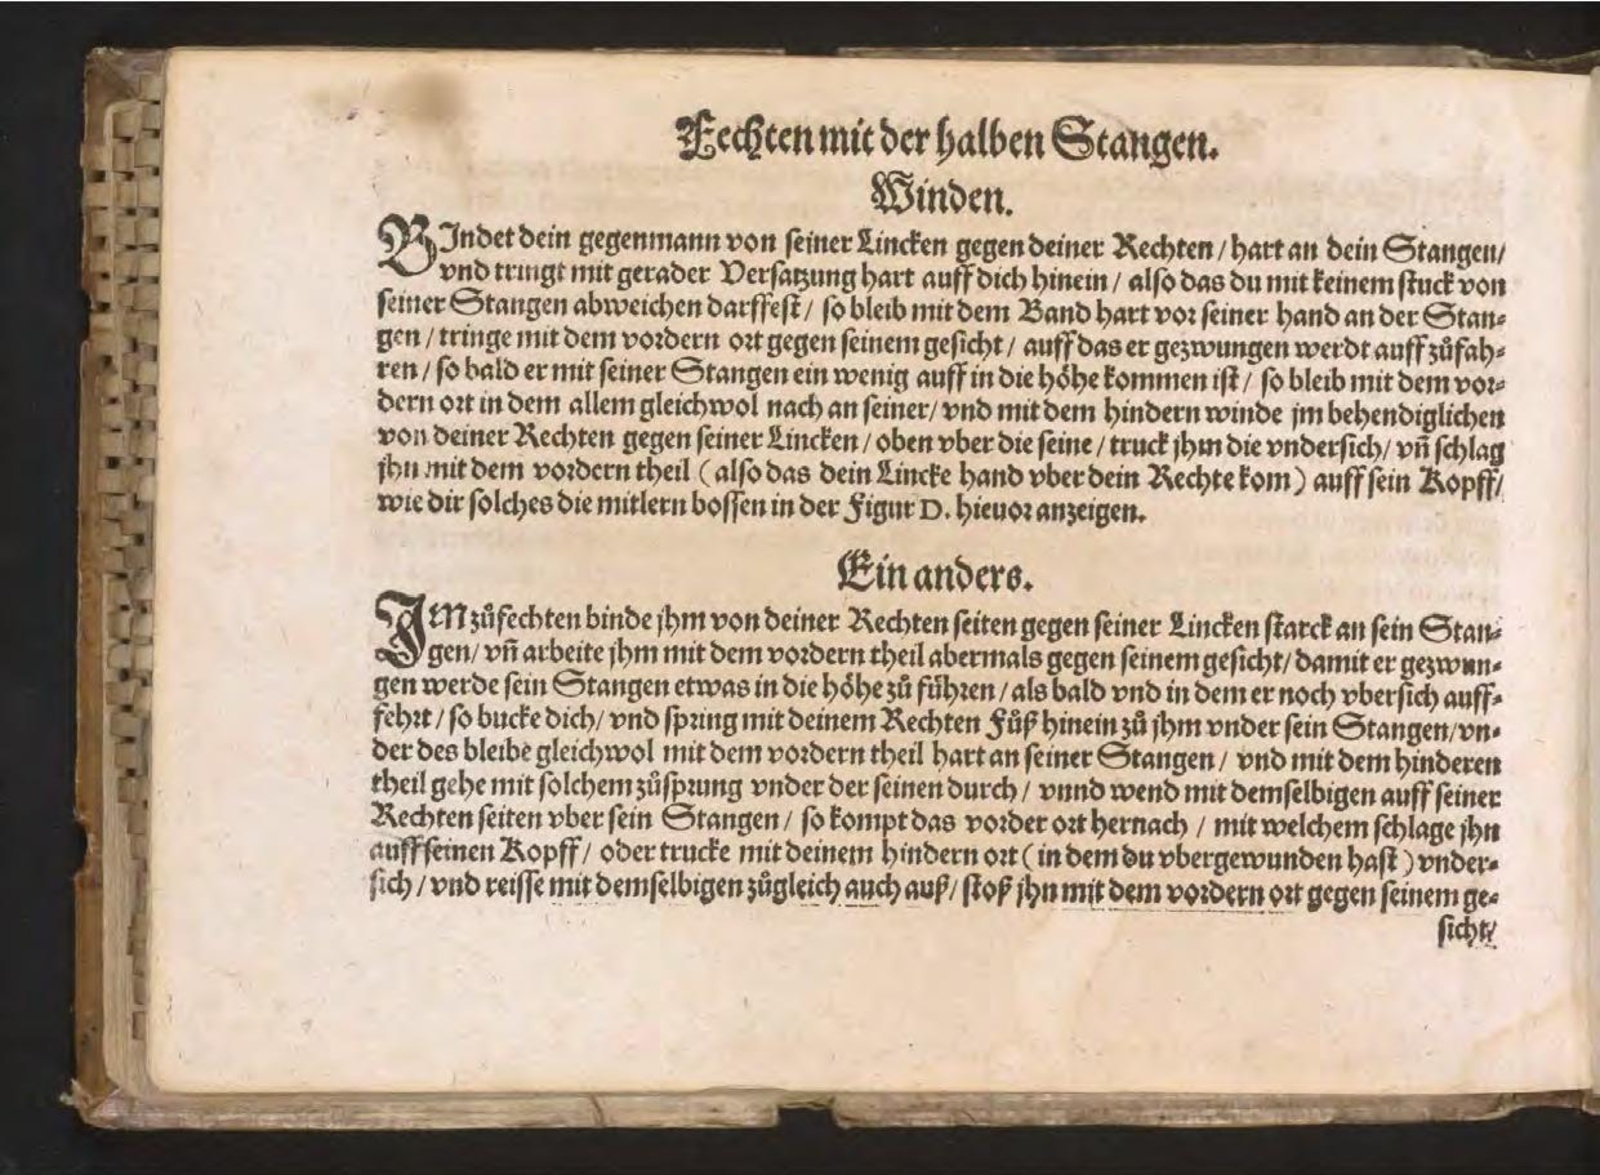 Fechten mit der halben Stangen.
Winden.
BIndet dein gegenmann von seiner Lincken gegen deiner Rechten / hart an dein Stangen/
vnd tringt mit gerader Versatzung hart auff dich hinein / also das du mit keinem stuck von
seiner Stangen abweichen darffest / so bleib mit dem Band hart vor seiner hand an der Stan-
gen / tringe mit dem vordern ort gegen seinem gesicht / auff das er gezwungen werdt auff zůfah-
ren / so bald er mit seiner Stangen ein wenig auff in die höhe kommen ist / so bleib mit dem vor-
dern ort in dem allem gleichwol nach an seiner/ vnd mit dem hindern winde jm behendiglichen
von deiner Rechten gegen seiner Lincken / oben vber die seine / truck jhm die vndersich/ vñ schlag
jhn mit dem vordern theil (also das dein Lincke hand vber dein Rechte kom) auff sein Kopff/
wie dir solches die mitlern bossen in der Figur D. hieuor anzeigen.
Ein anders.
IM zůfechten binde jhm von deiner Rechten seiten gegen seiner Lincken starck an sein Stan-
gen/ vñ arbeite jhm mit dem vordern theil abermals gegen seinem gesicht/ damit er gezwun-
gen werde sein Stangen etwas in die höhe zů führen / als bald vnd in dem er noch vbersich auff-
fehrt / so bucke dich/ vnd spring mit deinem Rechten Fůß hinein zů jhm vnder sein Stangen/vn-
der des bleibe gleichwol mit dem vordern theil hart an seiner Stangen / vnd mit dem hinderen
theil gehe mit solchem zůsprung vnder der seinen durch / vnnd wend mit demselbigen auff seiner
Rechten seiten vber sein Stangen / so kompt das vorder ort hernach / mit welchem schlage jhn
auff seinen Kopff / oder trucke mit deinem hindern ort (in dem du vbergewunden hast) vnder-
sich / vnd reisse mit demselbigen zůgleich auch auß/ stoß jhn mit dem vordern ort gegen seinem ge-
sicht/